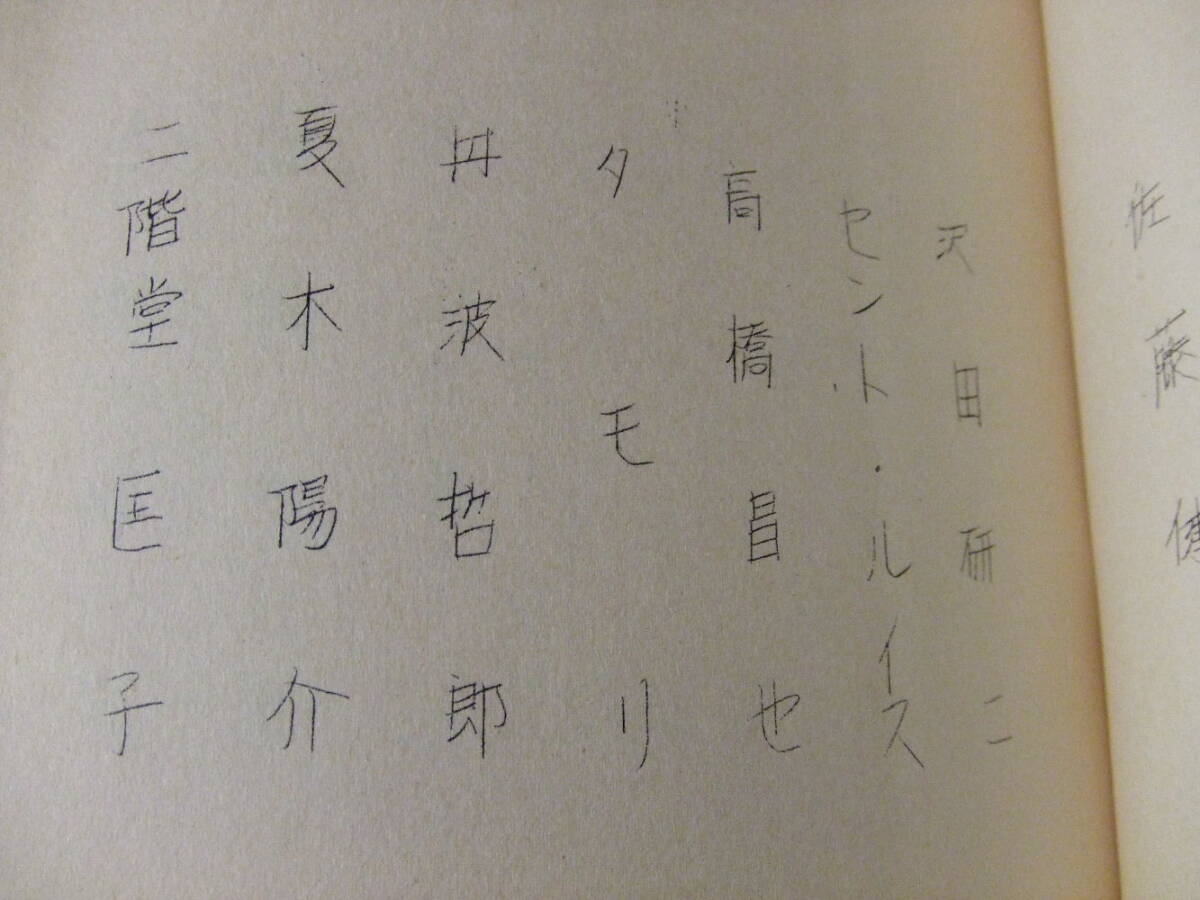 佐藤
沢田研二
セント・ルイス
高橋昌也
タモリ
丹波哲郎
夏木陽介
二階堂匡子